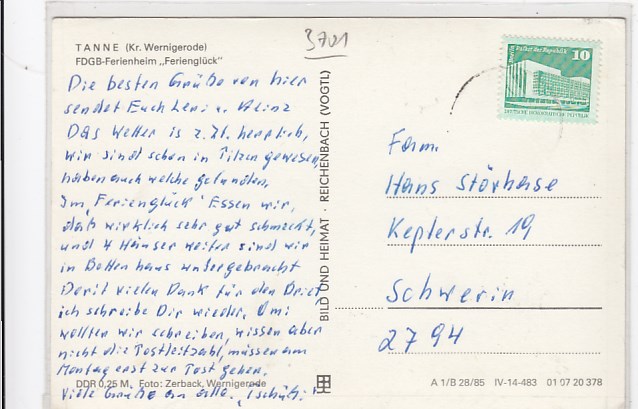 TANNE (Kr. Wernigerode)
FDGB-Ferienheim „Ferienglück"
3701
Die besten Grüße von hier
sendet Euch Leni u. Heinz
Das Wetter is z. Zt. herrlich,
wir sind schon in Pilzen gewesen,
haben auch welche gefunden.
Im „Ferienglück" Essen wir,
daß wirklich sehr gut schmeckt,
und 4 Häuser weiter sind wir
in Bettenhaus untergebracht
Dorit vielen Dank für den Brief
ich schreibe Dir wieder. Omi
wollten wir schreiben, wissen aber
nicht die Postleitzahl, müssen am
Montag erst zur Post gehen.
Viele Grüße an alle.
DDR 0,25 M. Foto: Zerback, Wernigerode
BILD UND HEIMAT · REICHENBACH (VOGTL)
Berlin Palast der Republik
10
DEUTSCHE DEMOKRATISCHE REPUBLIK
Fam.
Hans Störhase
Keplerstr. 19
Schwerin
2794
A 1/B 28/85 IV-14-483 01 07 20 378